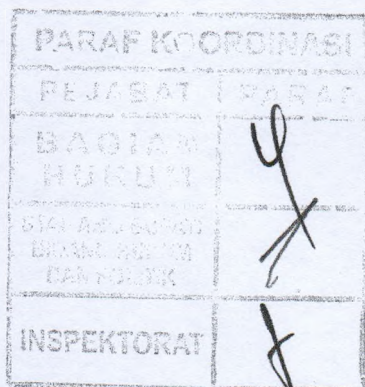 PARAF KOORDINASI
PEJABAT PARAF
BAGIAN
HUKUM
STAF AHLI BUPATI
BIDANG HUKUM
DAN POLITIK
INSPEKTORAT